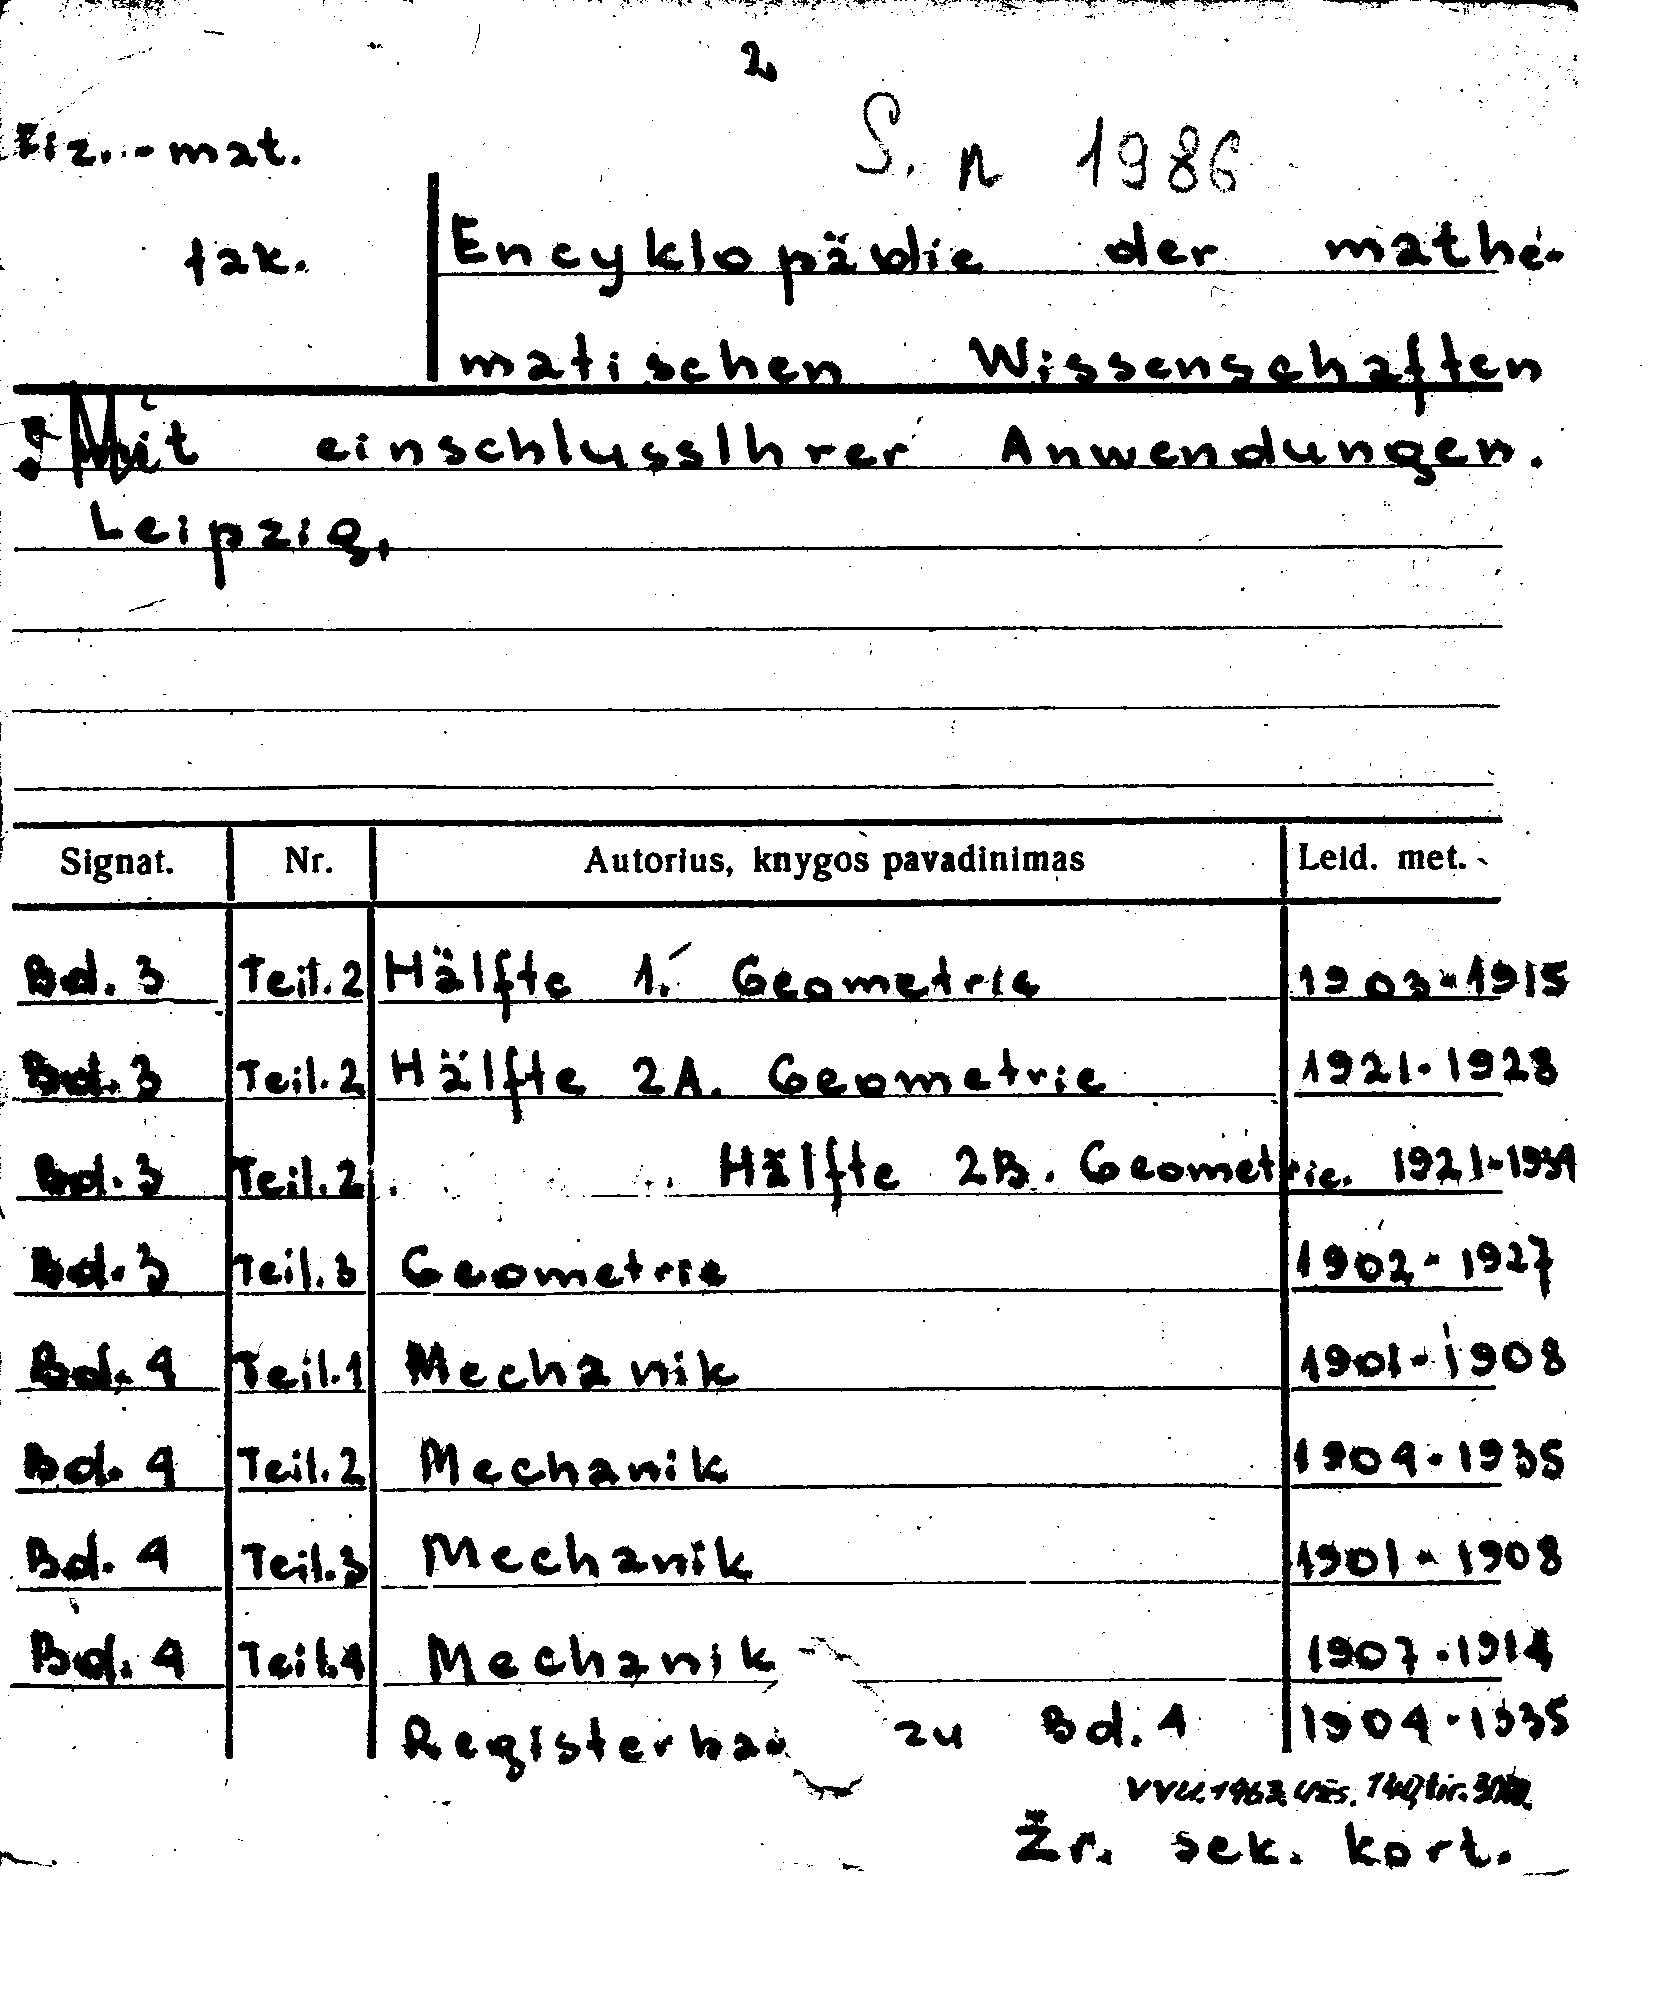 2
S. n 1986
Fiz.-mat.
fak.
Encyklopädie der mathe-
matischen Wissenschaften
: Mit einschlussIhrer Anwendungen.
Leipzig,
Signat. Nr. Autorius, knygos pavadinimas Leid. met.
Bd. 3 Teil.2 Hälfte 1. Geometrie 1903-1915
Bd. 3 Teil.2 Hälfte 2A. Geometrie 1921-1928
Bd. 3 Teil.2 Hälfte 2B. Geometrie. 1921-1934
Bd. 3 Teil.3 Geometrie 1902-1927
Bd. 4 Teil.1 Mechanik 1901-1908
Bd. 4 Teil.2 Mechanik 1904-1935
Bd. 4 Teil.3 Mechanik 1901-1908
Bd. 4 Teil.4 Mechanik 1907-1914
Registerba zu Bd. 4 1904-1935
VVU. 1962. Užs.
Žr. sek. kort.